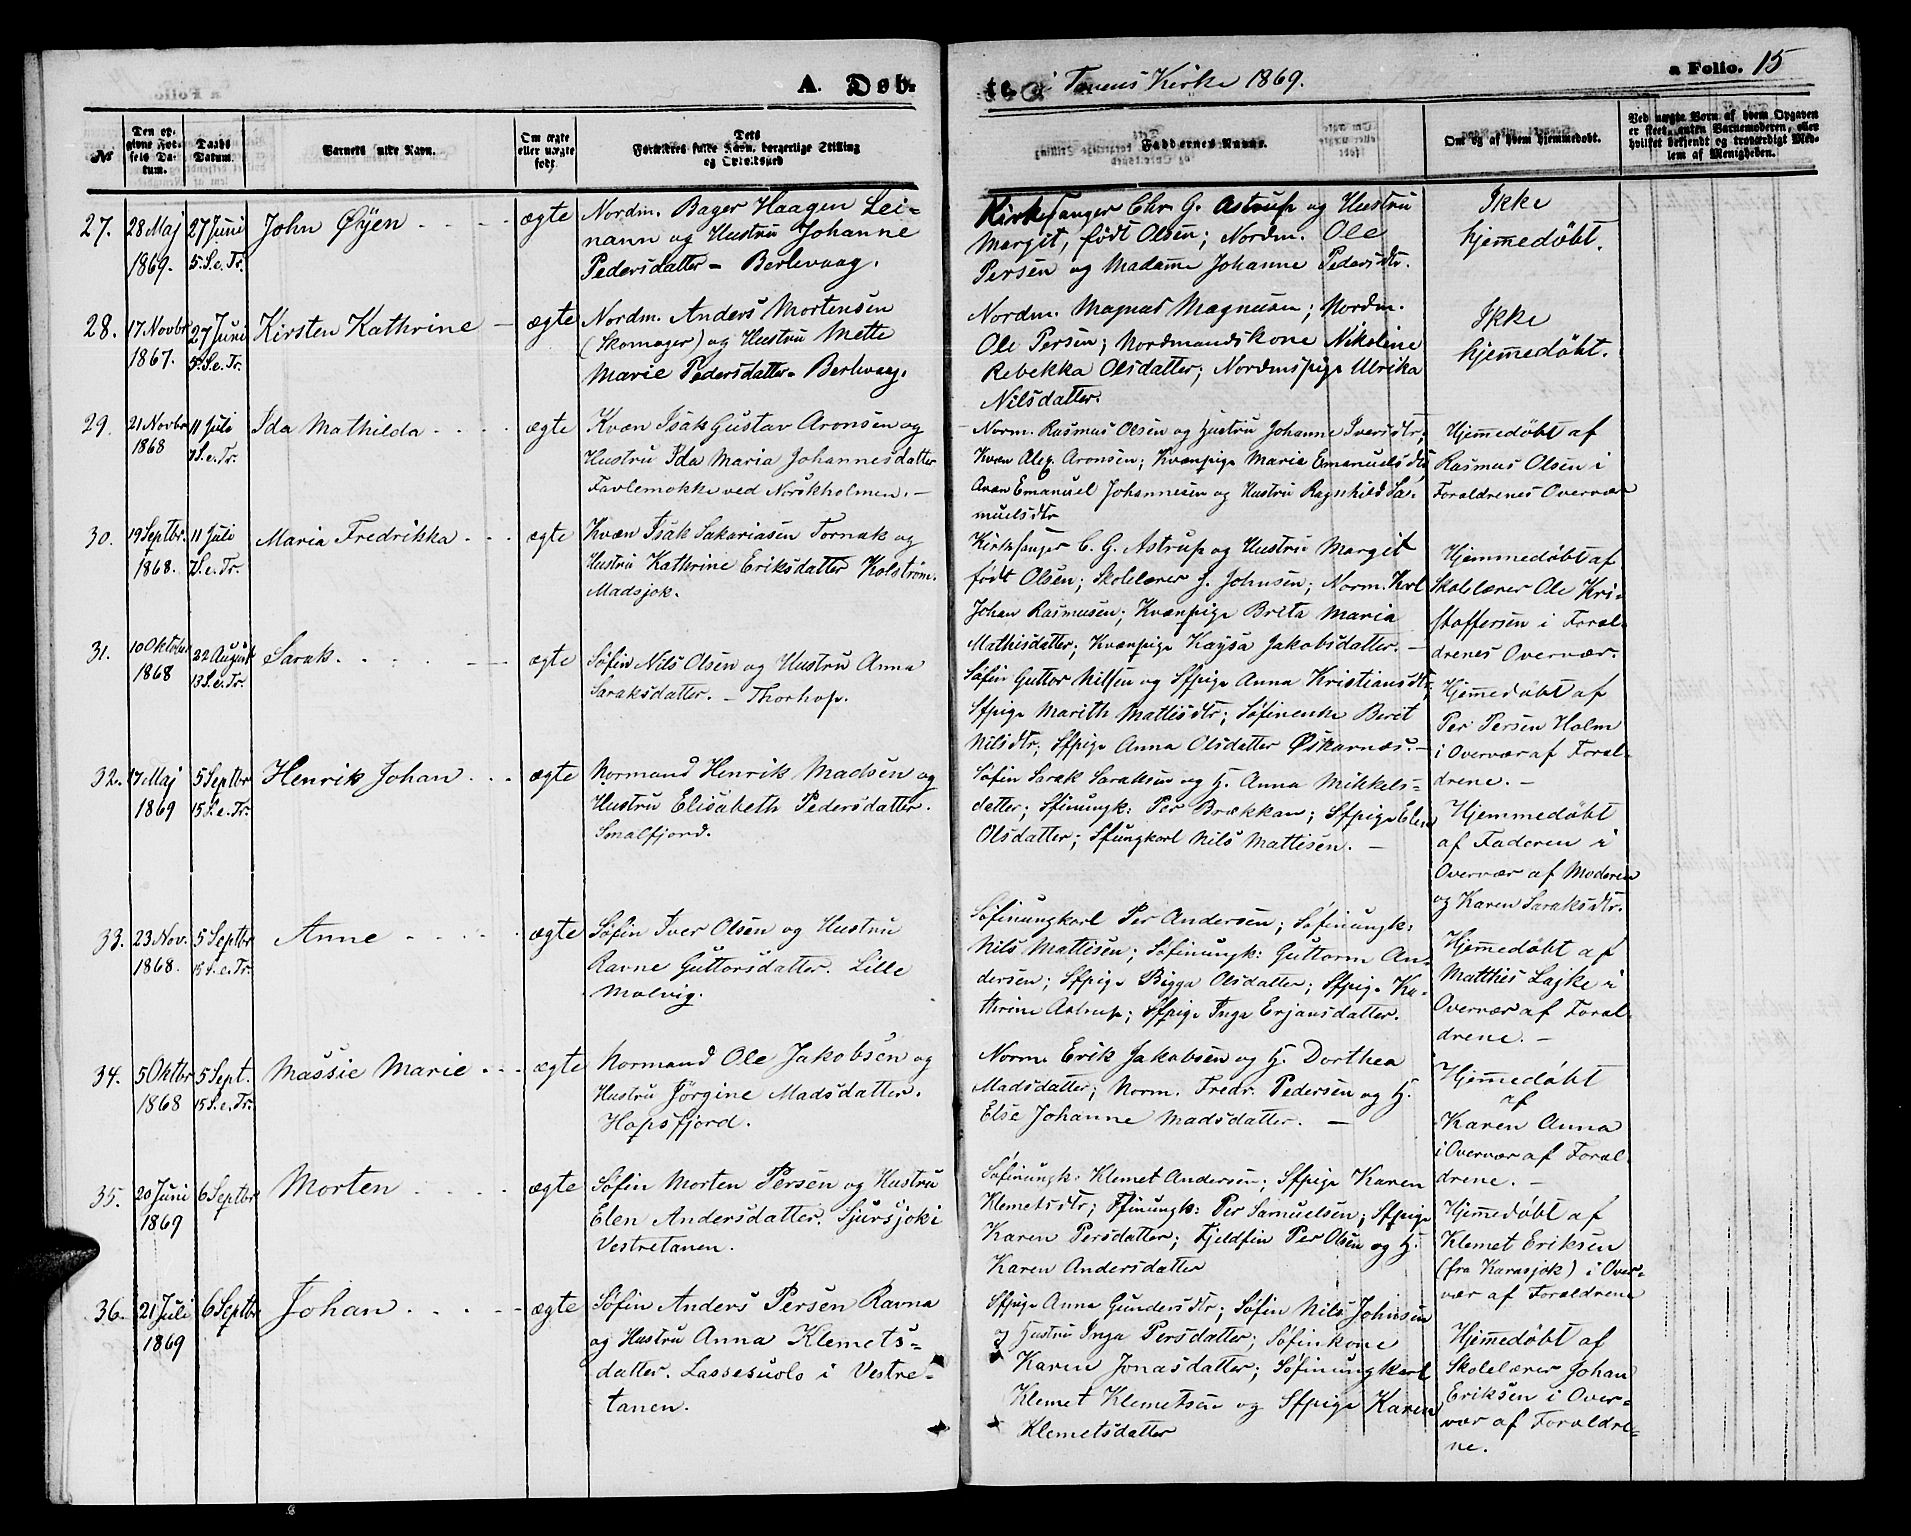 A. Døb-
te i Tanens Kirke 1869.
a Folio. 15
No
Den op-
givne Fød-
sels Da-
tum.
Daabs
Datum.
Barnets fulde Navn.
Om ægte
eller uægte
født.
Dets
Forældres fulde Navn, borgerlige Stilling
og Opholdssted
Faddernes Navne.
Om og af hvem hjemmedøbt.
Ved uægte Børn af hvem Opgaven
er skeet, enten Barnemoderen, eller
hvilket bekjendt og troværdigt Med-
lem af Menigheden.
27.
28 Maj
1869.
27 Juni
5.S.e.Tr.
John Øÿen
ægte
Nordm. Bager Haagen Lei-
nann og Hustru Johanne
Pedersdatter - Berlevaag.
Kirkesanger Chr. G. Astrup og Hustru
Margit, født Olsen; Nordm. Ole
Persen og Madame Johanne Pedersdtr.
Ikke
hjemedøbt.
28.
17 Novbr
1867.
27 Juni
5.S.e.Tr.
Kirsten Kathrine
ægte
Nordm. Anders Mortensen
(Skomager) og Hustru Mette
Marie Pedersdatter - Berlevaag.
Nordm. Magnus Magnusen; Nordm.
Ole Persen; Nordmandskone Nikoline
Rebekka Olsdatter; Nordmspige Ulrika
Nilsdatter.
Ikke
hjemedøbt.
29.
21 Novbr
1868
11 Juli
7.S.e.Tr.
Ida Mathilda
ægte
Kvæn Isak Gustav Aronsen og
Hustru Ida Maria Johannesdatter
Favlemokke ved Norskholmen. -
Norm. Rasmus Olsen og Hustru Johanne Iversdtr;
Kvæn Alex Aronsen; Kvænpige Maria Emanuelsdtr
Kvæn Emanuel Johannesen og Hustru Ragnhild Sa-
muelsdtr
Hjemedøbt af
Rasmus Olsen i
Foraldrenes Overvær
30.
19 Septbr.
1868.
11 Juli
7.S.e.Tr.
Maria Fredrikka
ægte
Kvæn Isak Sakariasen Tornak og
Hustru Kathrine Eriksdatter Kolström.
Madsjok.
Kirkesanger C. G. Astrup og Hustru Margit
født Olsen; Skolelærer J. Johnsen; Norm. Karl
Johan Rasmusen; Kvænpige Brita Maria
Mathisdatter; Kvænpige Kaysa Jakobsdatter. -
Hjemmedøbt af
Skolelærer Ole Kri-
stoffersen i Foræl-
drenes Overvær.
31.
10 Oktober
1868
22 August
13 S.e.Tr.
Sarak.
ægte
Søfin Nils Olsen og Hustru Anna
Saraksdatter. - Thorhop.
Søfin Guttor Nilsen og Sfpige Anna Kristiansdtr;
Sfpige Marith Mattisdtr; Søfinenke Berit
Nilsdtr; Sfpige Anna Olsdatter Øskarnæs. -
Hjemedøbt af
Per Persen Holm
i Overvær af Foræl-
drene. -
32.
17 Maj
1869
5 Septbr
15 S.e.Tr.
Henrik Johan
ægte
Normand Henrik Madsen og
Hustru Elisabeth Pedersdatter.
Smalfjord.
Søfin Sarak Saraksen og H. Anna Mikkels-
datter; Sfinungk: Per Brækkan; Sfpige Elen
Olsdatter; Sfungkarl Nils Mattisen. -
Hjemmedøbt
af Faderen i
Overvær af Moderen
og Karen Saraksdtr.
33.
23 Nov.
1868.
5 Septbr
15 S.e.Tr.
Anne
ægte
Søfin Iver Olsen og Hustru
Ravne Guttorsdatter. Lille
Molvig.
Søfinungkarl Per Andersen; Søfinungk:
Nils Mattisen; Søfinungk: Guttorm An-
dersen; Sfpige Bigga Olsdatter; Sfpige Ka-
thrine Astrup; Sfpige Inga Erjansdatter.
Hjemedøbt af
Matthis Lajke i
Overvær af Foræl-
drene. -
34.
5 Oktbr
1868
5 Sept.
15 S.e.Tr.
Massie Marie
ægte
Normand Ole Jakobsen og
Hustru Jörgine Madsdatter.
Hopsfjord.
Norm. Erik Jakobsen og H. Dorthea
Madsdatter; Norm. Fredr. Pedersen og H.
Else Johanne Madsdatter. -
Hjemedøbt
af
Karen Anna
i Overvær af Foræl-
drene. -
35.
20 Juni
1869
6 Septbr
Morten
ægte
Søfin Morten Persen og Hustru
Elen Andersdatter. Sjursjok i
Vestretanen.
Søfinungk: Klemet Andersen; Sfpige Karen
Klemetsdtr; Ffinungk: Per Samuelsen; Sfpige
Karen Persdatter; Fjeldfin Per Olsen og H.
Karen Andersdatter
Hjemedøbt af
Klemet Eriksen
(fra Karasjok) i Over-
vær af Forældrene
36.
21 Juli
1869
6 Septbr
Johan
ægte
Søfin Anders Persen Ravna
og Hustru Anna Klemets-
datter. Lassesuolo i Vestre-
tanen.
Sfpige Anna Gundersdtr; Søfin Nils Johnsen
og Hustru Inga Persdatter; Søfinkone
Karen Jonasdatter; Søfinungkarl
Klemet Klemetsen og Sfpige Karen
Klemetsdatter
Hjemedøbt af
Skolelærer Johan
Eriksen i Over-
vær af Forældre-
ne.